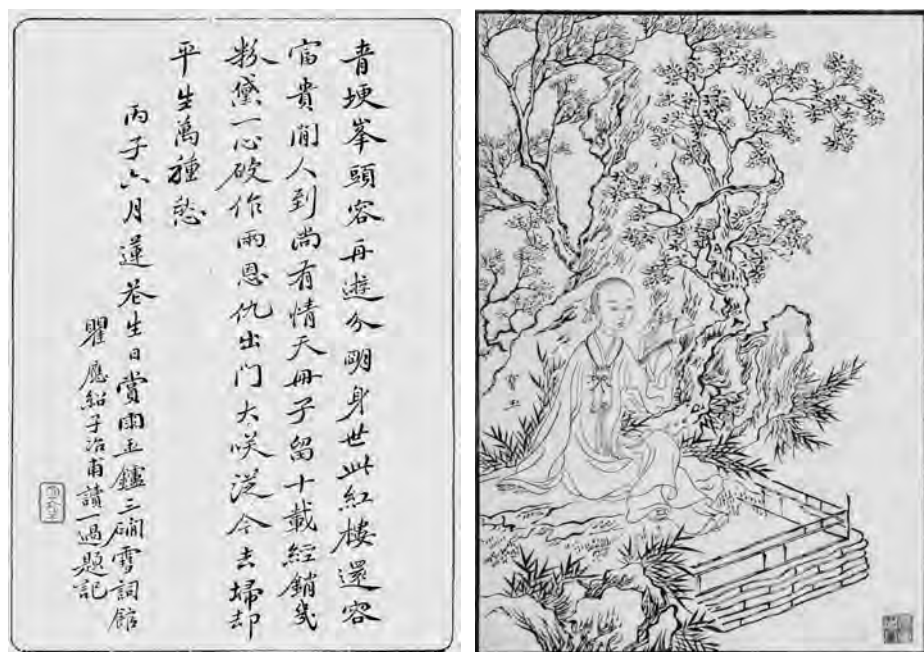 青埂峯頭容再遊分明身世此紅樓還容
富貴閒人到尚有情天冊子留十載經銷幾
粉黛一心破作兩恩仇出門大咲從今去埽却
平生萬種愁
丙子六月蓮花生日賞雨玉鑪三硐雪詞館
瞿應紹子冶甫讀一過題記
寶玉